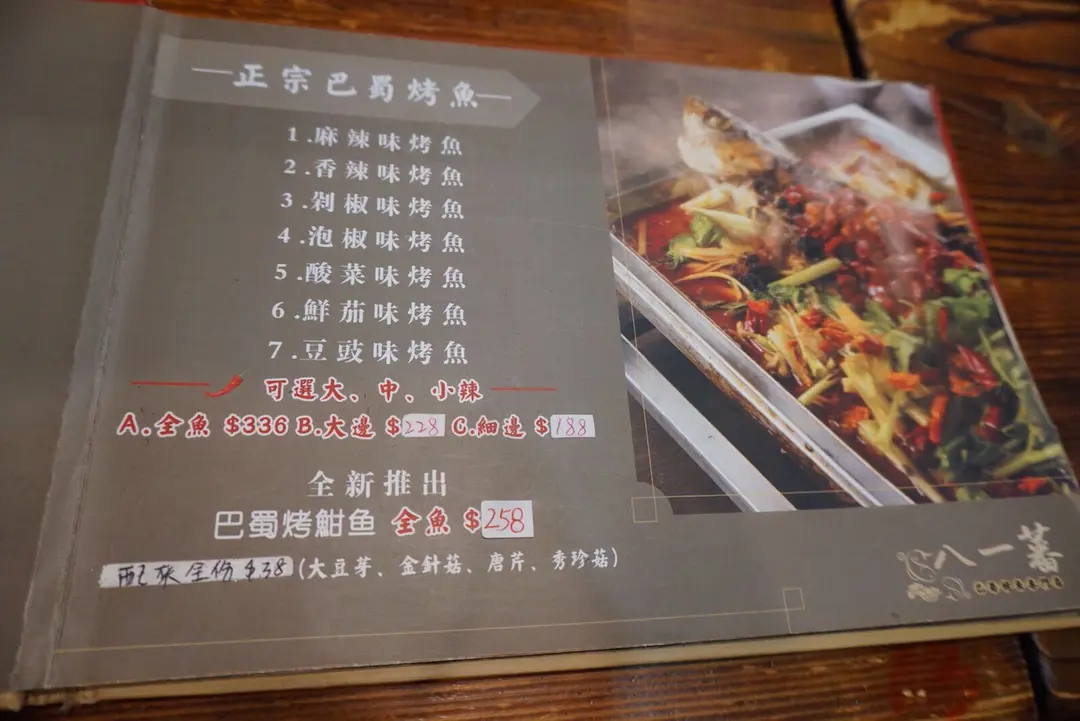 正宗巴蜀烤魚
1.麻辣味烤魚
2.香辣味烤魚
3.剁椒味烤魚
4.泡椒味烤魚
5.酸菜味烤魚
6.鮮茄味烤魚
7.豆豉味烤魚
可選大、中、小辣
A.全魚 $336 B.大邊 $228 C.細邊 $188
全新推出
巴蜀烤鮒鱼 全魚 $258
配菜全份 $38 (大豆芽、金針菇、唐芹、秀珍菇)
八一蕃